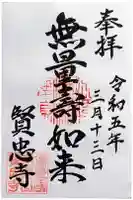 奉拝
令和五年
三月十三日
無量壽如来
賢忠寺